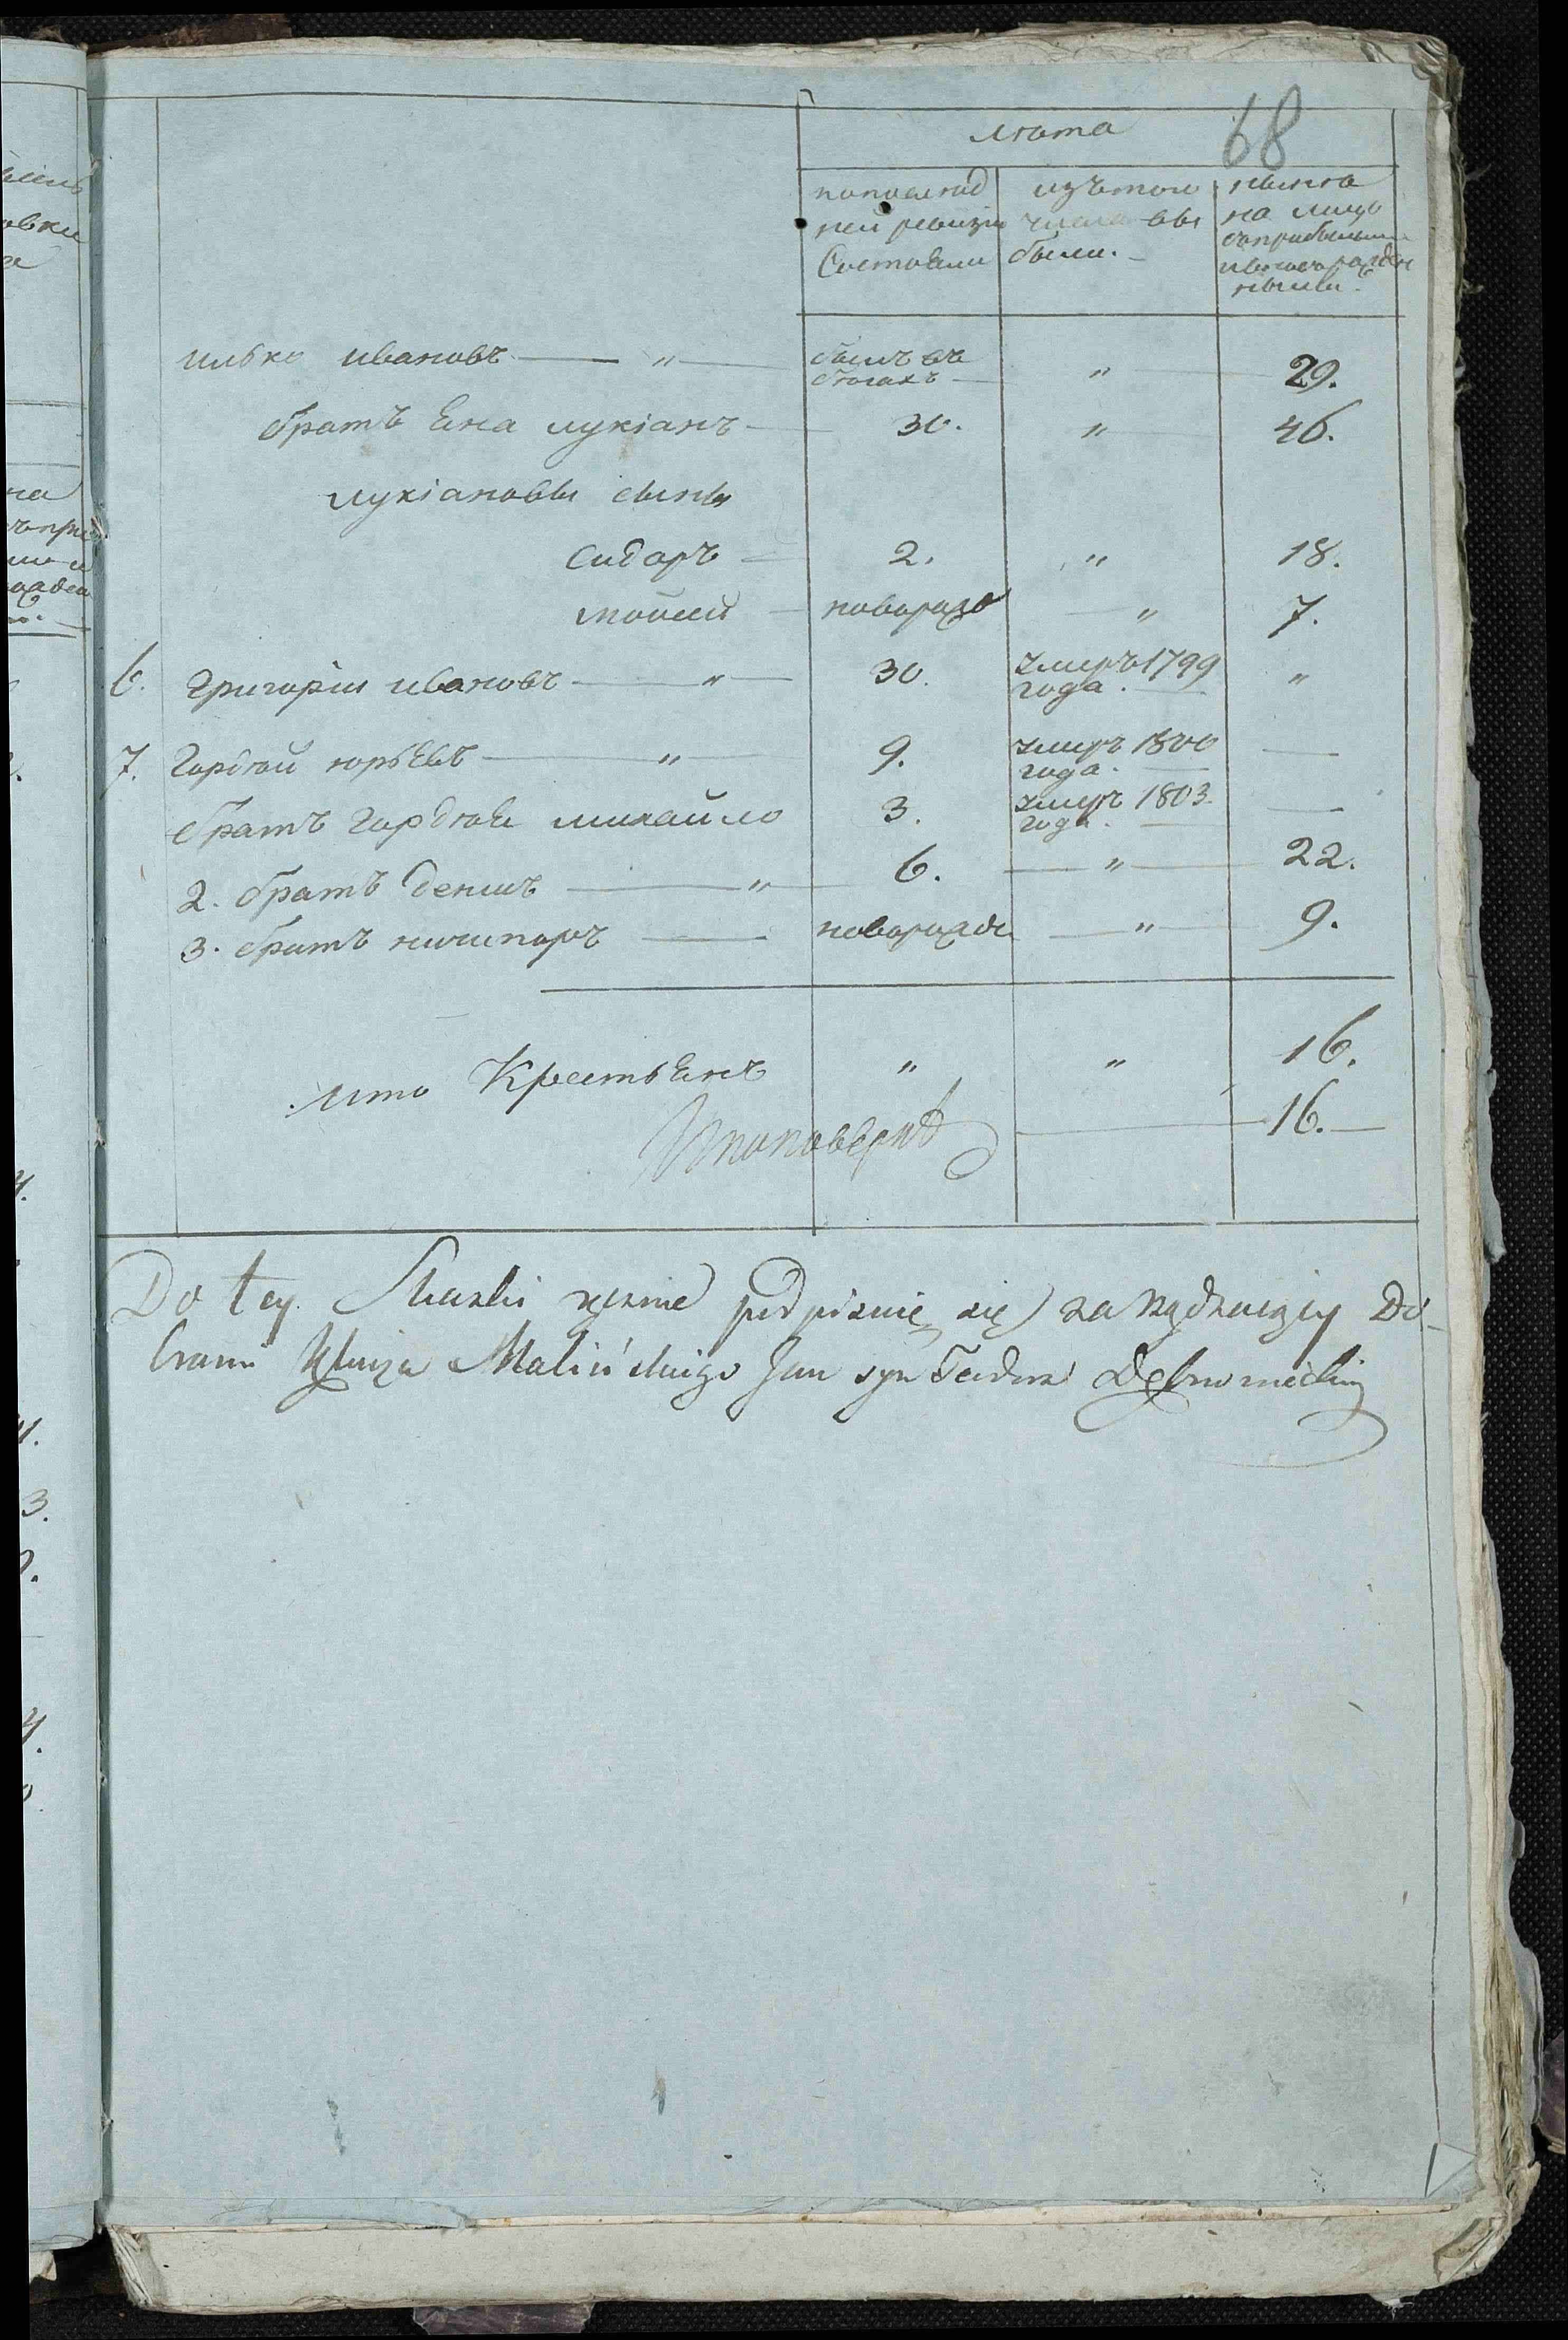 68
лѣта
попослѣд
ней ревизіи
Состояли
изътого
числа вы
были.
нынѣ
на лицо
съприбылыми
ивновь рожден
ными.
илько ивановъ — " — былъ въ бѣгахъ — " — 29.
братъ Ево лукіанъ — 30. " — 46.
лукіановы сыны
Сидоръ — 2. " — 18.
мойсей — новорозд — " — 7.
6. григорій ивановъ — " — 30. умеръ 1799 года. — "
7. Гордѣй юрьевъ — " — 9. умеръ 1800 года. —
братъ гордѣя михайло 3. умеръ 1803 года. —
2. братъ денисъ — " — 6. — " — 22.
3. братъ ничипоръ — новорожде — " — 9.
Ито Крестьянъ " " 16.
16.
Do tey Skazki ręcznie podpisuię się zarządzaiący Do-
brami Xięcia Malińskiego Jan syn Teodora